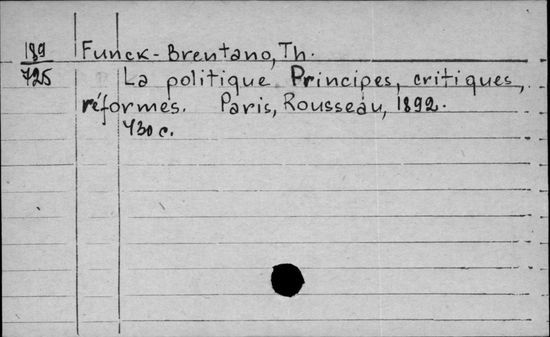 189 Funck-Brentano, Th.
725 La politique Principes, critiques,
réformes. Paris, Rousseau, 1892.
430 c.